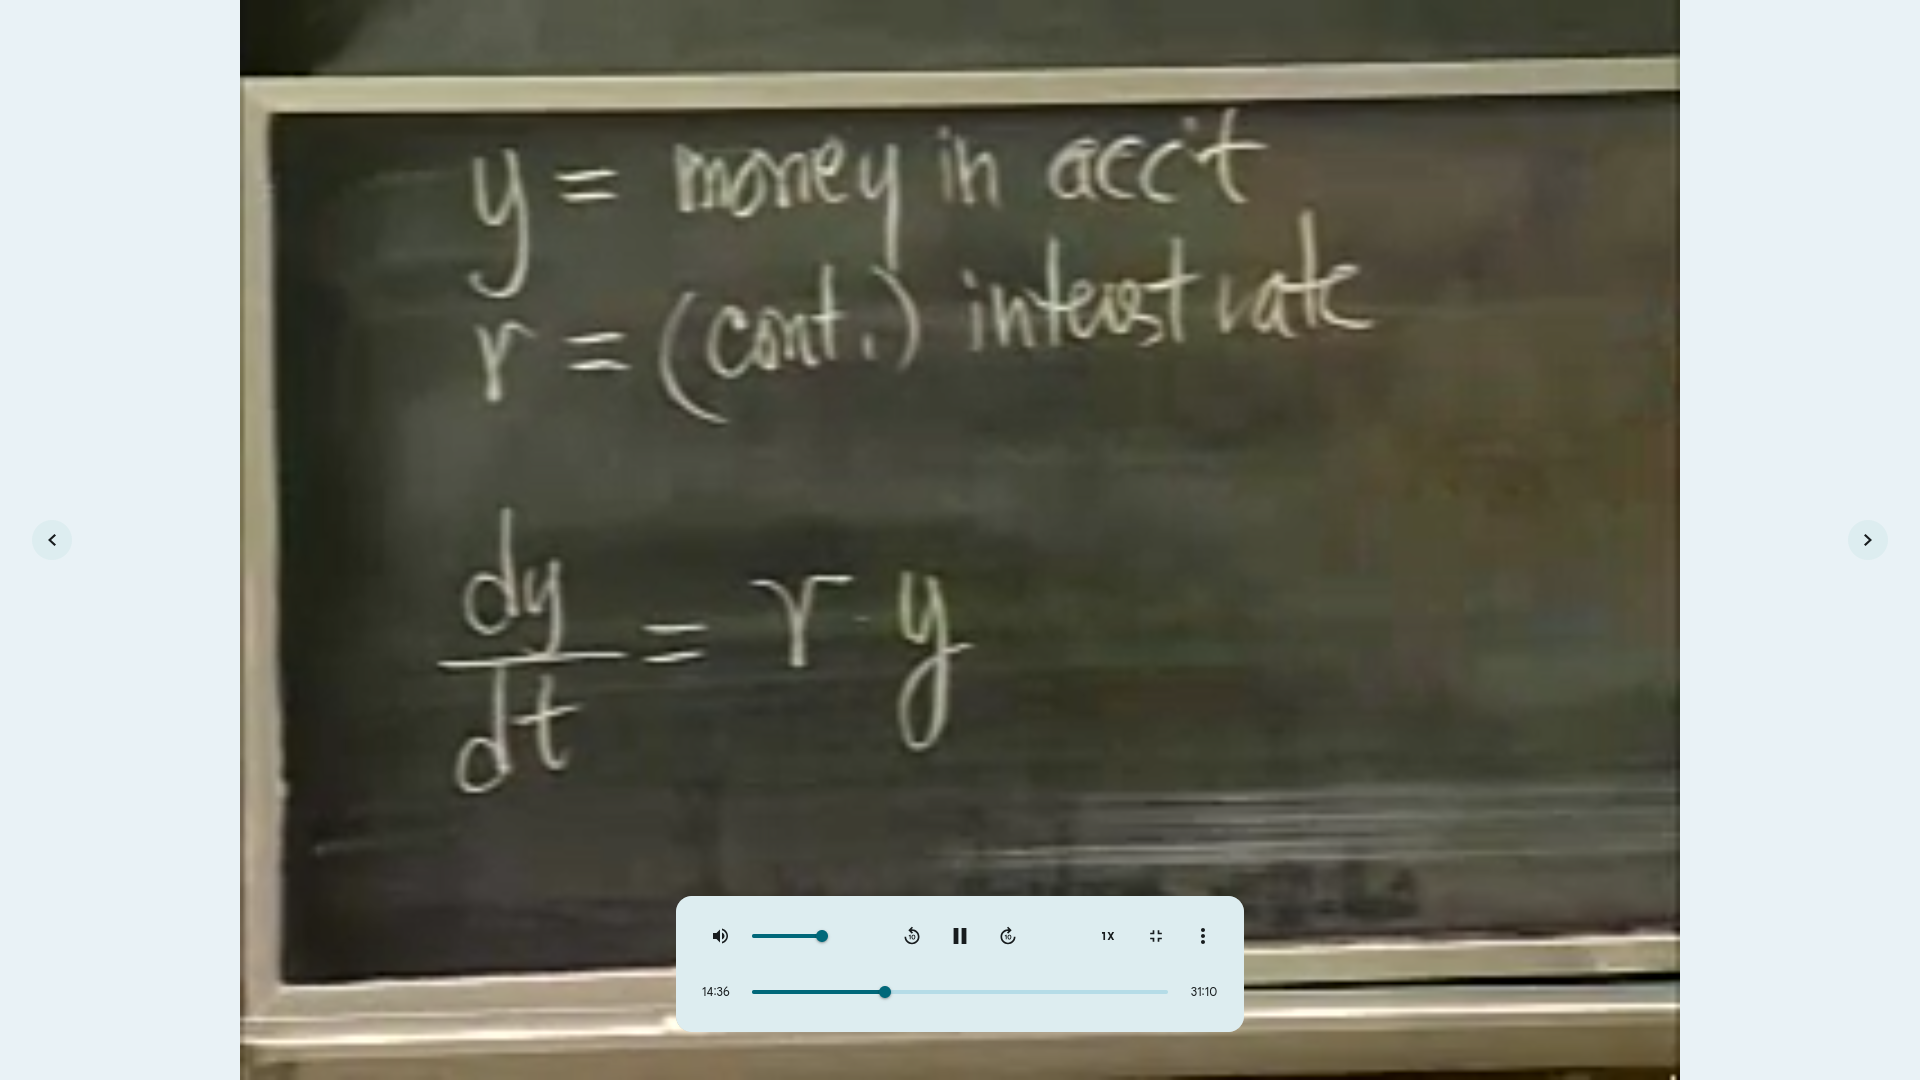 y = money in acc't
r = (cont.) interest rate
dy/dt = r · y
1X
14:36
31:10